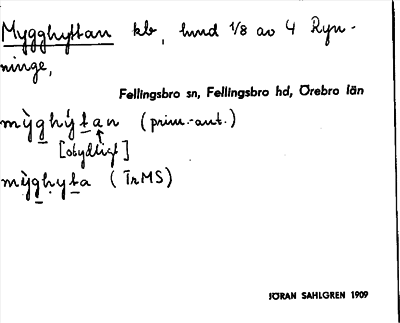 Mygghyttan kb, hmd 1/8 av 4 Ryn-
ninge,
Fellingsbro sn, Fellingsbro hd, Örebro län
mỳghý̀tan (prim.-ant.)
[otydligt]
mỳghyta (TrMS)
JÖRAN SAHLGREN 1909